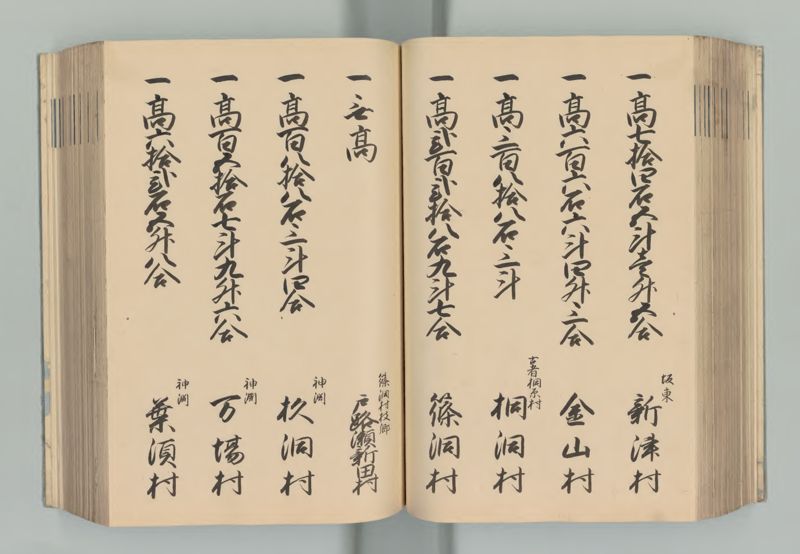 一高七拾四石五斗壱升五合 坂東 新津村
一高六百六石六斗四升三合 金山村
一高三百八拾八石三斗 古者桐原村 桐洞村
一高弐百弐拾八石九斗七合 篠洞村
一無高 篠洞村枝郷 戸路瀬新田村
一高百八拾八石三斗四合 神渕 杉洞村
一高百五拾石七斗九升六合 神渕 万場村
一高六拾弐石五升八合 神渕 葉須村